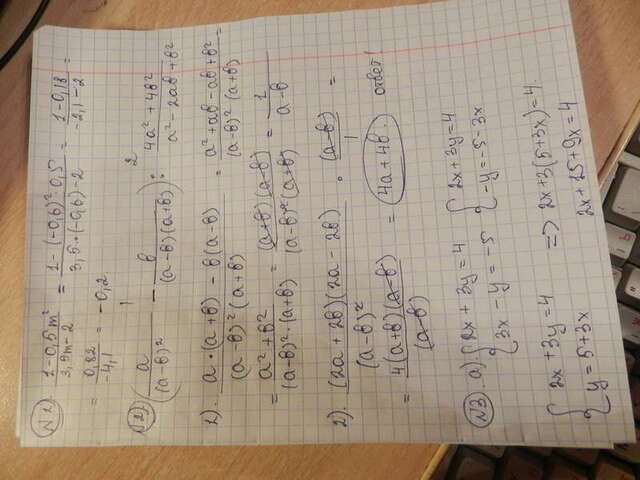 N1) (1-0,5m²)/(3,5m-2) = (1-(-0,6)²·0,5)/(3,5·(-0,6)-2) = (1-0,18)/(-2,1-2) =
= 0,82/-4,1 = -0,2
N2) (a/(a-b)² - b/((a-b)(a+b))) : (4a²+4b²)/(a²-2ab+b²)
1 2
1). (a·(a+b) - b(a-b))/((a-b)²(a+b)) = (a²+ab-ab+b²)/((a-b)²(a+b)) =
= (a²+b²)/((a-b)²·(a+b)) = ((a+b)(a-b))/((a-b)²(a+b)) = 1/(a-b)
2). ((2a+2b)(2a-2b))/(a-b)² · (a-b)/1 =
= (4(a+b)(a-b))/(a-b) = 4a+4b. ответ!
N3 .a). { 2x+3y=4 { 2x+3y=4
3x-y=-5 -y=-5-3x
{ 2x+3y=4 => 2x+3(5+3x)=4.
y=5+3x 2x+15+9x=4